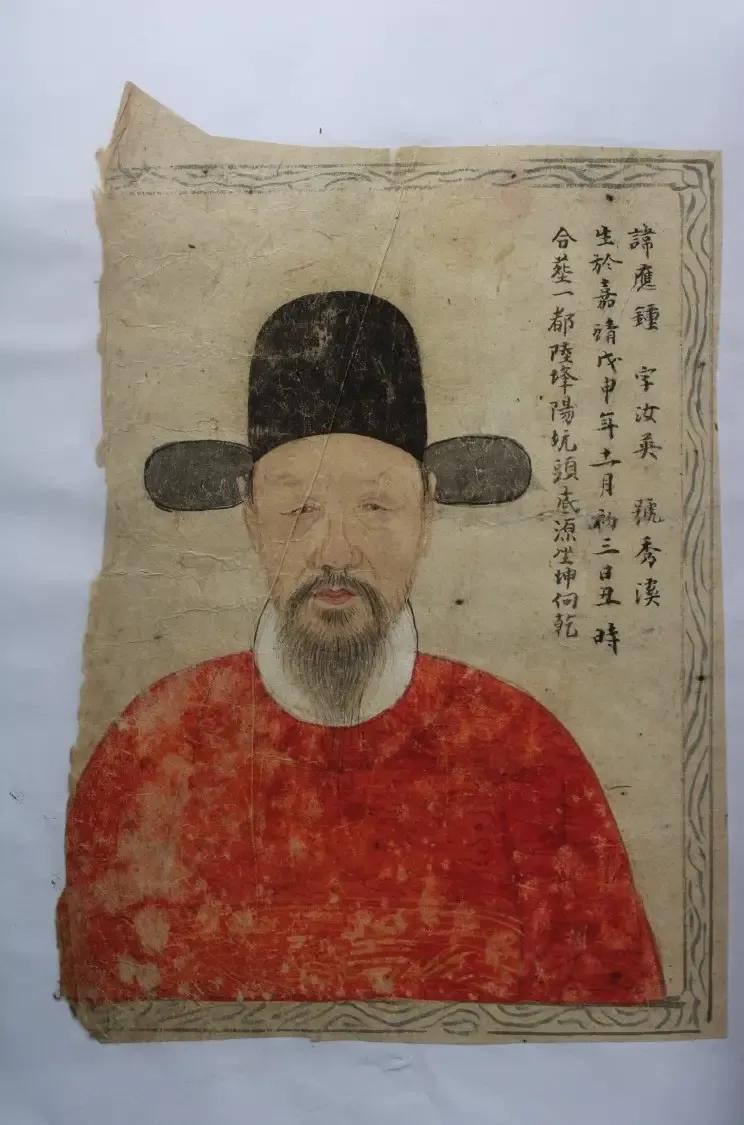 諱應鍾 字汝英 號秀溪
生於嘉靖戊申年十一月初三日丑時
合塟一都陸峰陽坑頭底源坐坤向乾